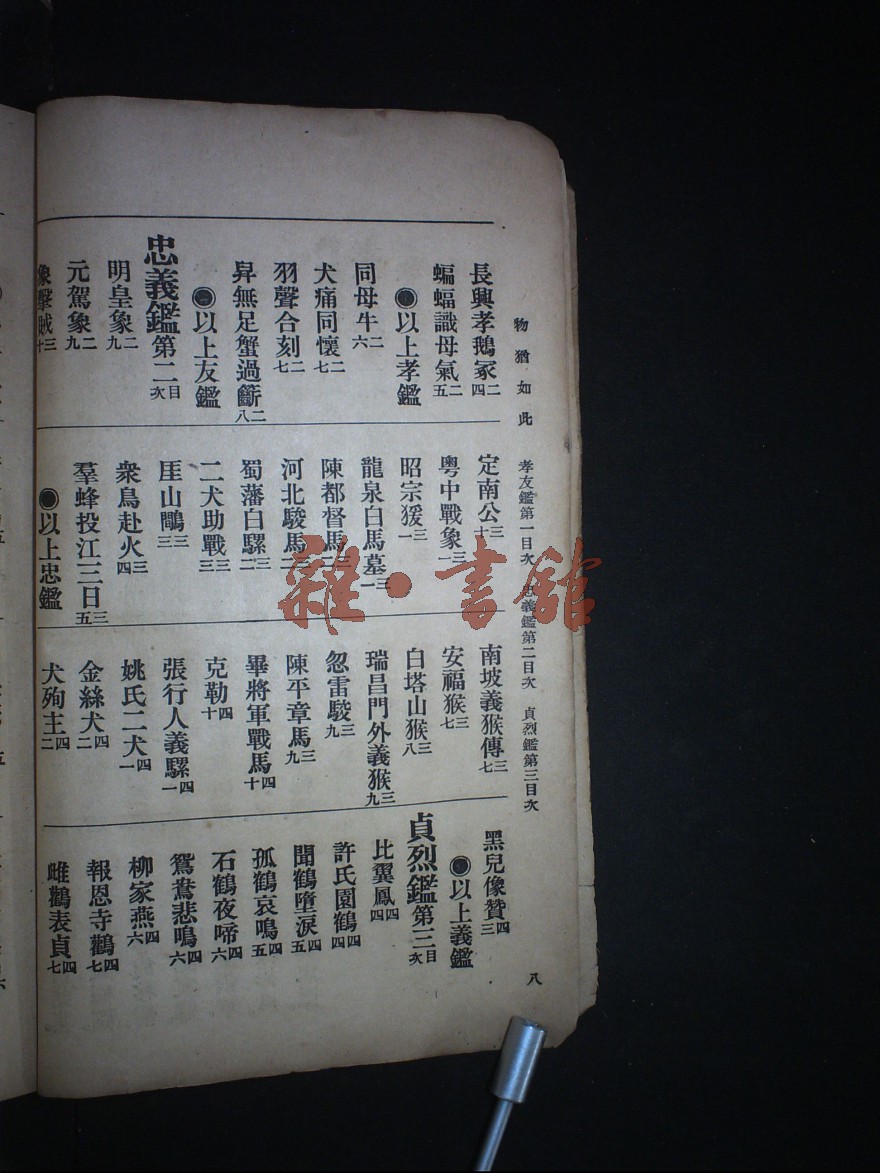 物猶如此 孝友鑑第一目次 忠義鑑第二目次 貞烈鑑第三目次 八
長興孝鵝冢二四
蝙蝠識母氣二五
●以上孝鑑
同母牛二六
犬痛同懷二七
羽聲合刻二七
昇無足蟹過籪二八
●以上友鑑
忠義鑑第二目次
明皇象二九
元駕象二九
象擊賊三十
定南公三十
粵中戰象三一
昭宗猨三一
龍泉白馬墓三一
陳都督馬三二
河北駿馬三二
蜀藩白騾三二
二犬助戰三三
厓山鷴三三
衆鳥赴火三四
羣蜂投江三日三五
●以上忠鑑
南坡義猴傳三七
安福猴三七
白塔山猴三八
瑞昌門外義猴三九
忽雷駿三九
陳平章馬三九
畢將軍戰馬四十
克勒四十
張行人義騾四一
姚氏二犬四一
金絲犬四二
犬殉主四二
黑兒像贊四三
●以上義鑑
貞烈鑑第三目次
比翼鳳四四
許氏園鶴四四
聞鶴墮淚四五
孤鶴哀鳴四五
石鶴夜啼四六
鴛鴦悲鳴四六
柳家燕四六
報恩寺鸛四七
雌鸛表貞四七
雜·書館